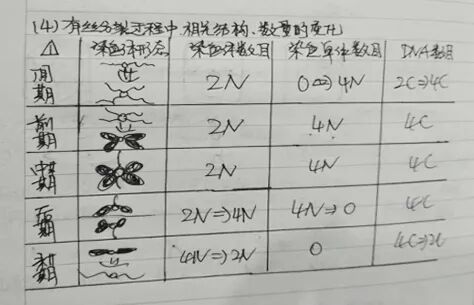 (4) 有丝分裂过程中,相关结构、数量的变化
△ 染色体形态 染色体数目 染色单体数目 DNA数目
间期 2N 0⇒4N 2C⇒4C
前期 2N 4N 4C
中期 2N 4N 4C
后期 2N⇒4N 4N⇒0 4C
末期 4N⇒2N 0 4C⇒2C